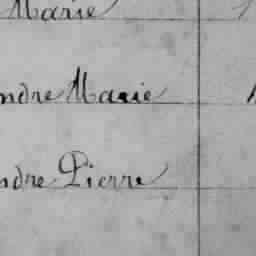 Marie
ndre Marie
ndre Pierre